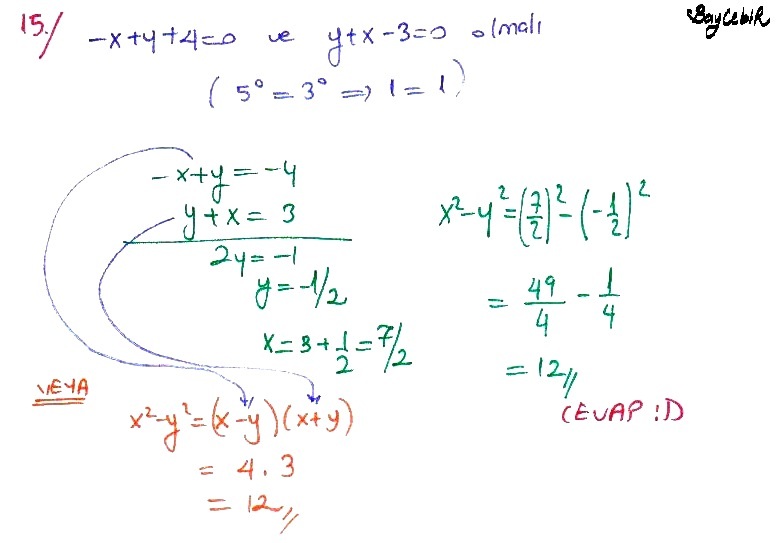 BayCebiR
15./ -x+y+4=0 ve y+x-3=0 olmalı
(5⁰ = 3⁰ ⇒ 1 = 1)
-x+y = -4
y+x = 3
2y = -1
y = -1/2
x = 3 + 1/2 = 7/2
x²-y² = (7/2)² - (-1/2)²
= 49/4 - 1/4
= 12//
CEVAP :D
VEYA
x²-y² = (x-y)(x+y)
= 4 . 3
= 12//